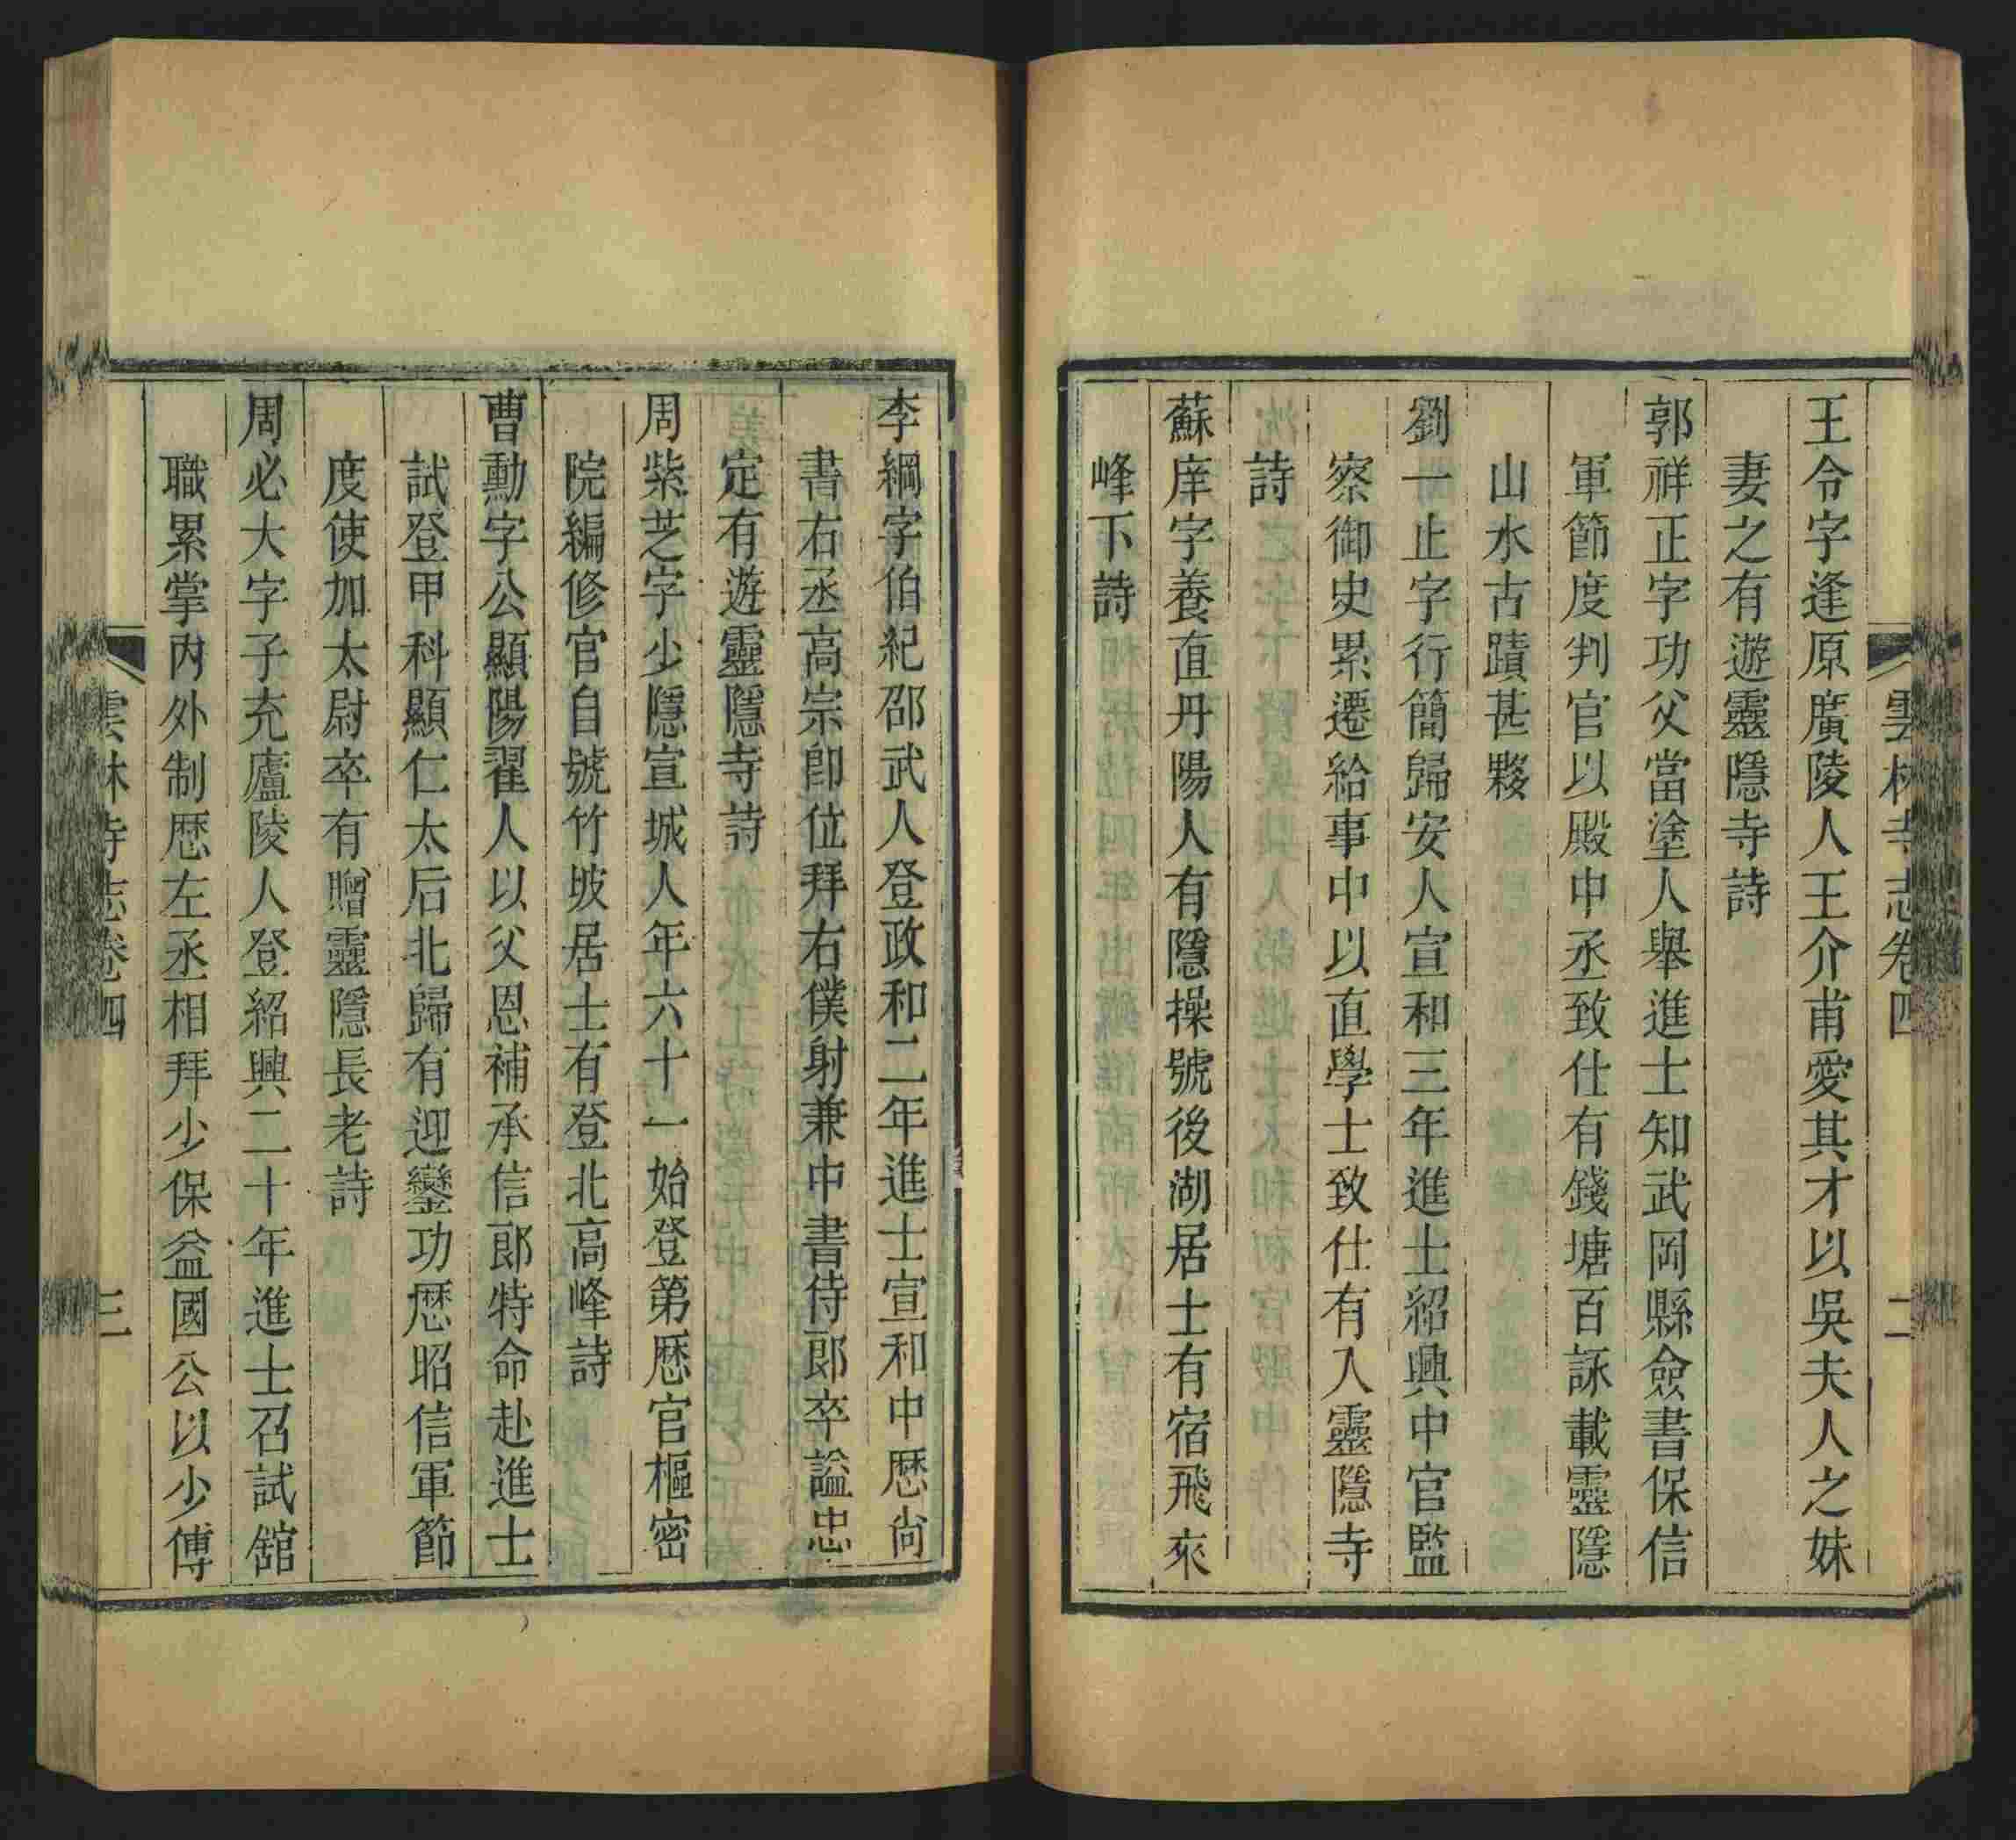 雲林寺志卷四
二
王令字逢原廣陵人王介甫愛其才以吳夫人之妹
妻之有遊靈隱寺詩
郭祥正字功父當塗人舉進士知武岡縣僉書保信
軍節度判官以殿中丞致仕有錢塘百詠載靈隱
山水古蹟甚夥
劉一止字行簡歸安人宣和三年進士紹興中官監
察御史累遷給事中以直學士致仕有入靈隱寺
詩
蘇庠字養直丹陽人有隱操號後湖居士有宿飛來
峰下詩
李綱字伯紀邵武人登政和二年進士宣和中歷尚
書右丞高宗卽位拜右僕射兼中書侍郎卒諡忠
定有遊靈隱寺詩
周紫芝字少隱宣城人年六十一始登第歷官樞密
院編修官自號竹坡居士有登北高峰詩
曹勳字公顯陽翟人以父恩補承信郎特命赴進士
試登甲科顯仁太后北歸有迎鑾功歷昭信軍節
度使加太尉卒有贈靈隱長老詩
周必大字子充廬陵人登紹興二十年進士召試舘
職累掌內外制歷左丞相拜少保益國公以少傅
雲林寺志卷四
三